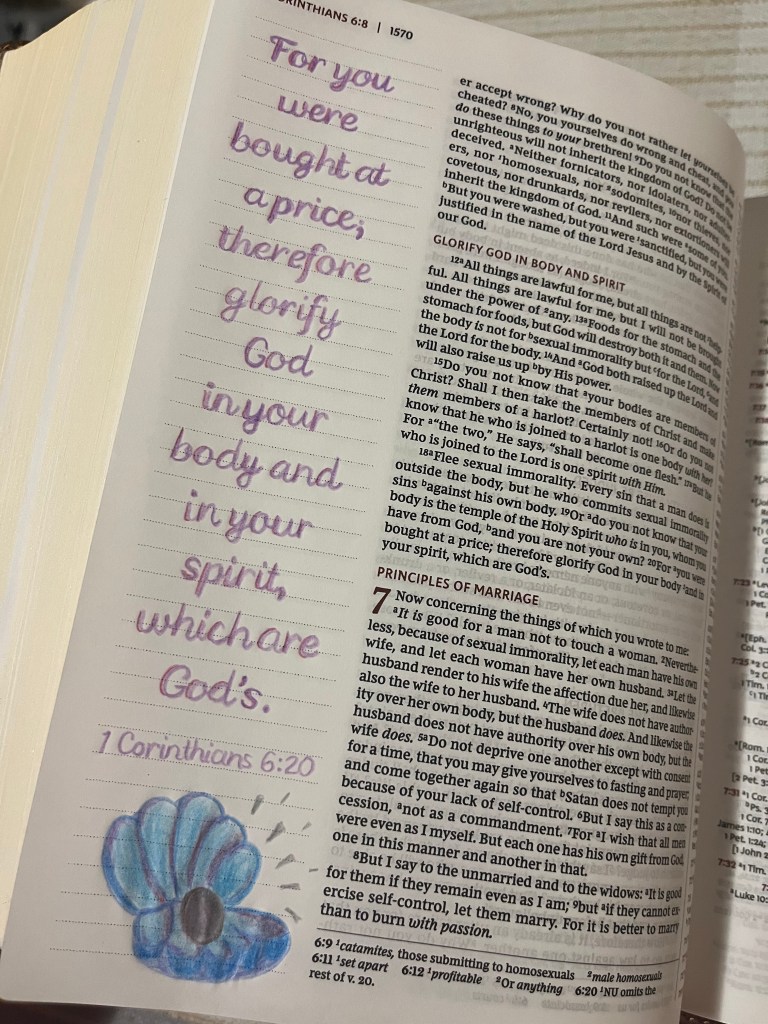 ORINTHIANS 6:8 | 1570
For you
were
bought at
a price;
therefore
glorify
God
in your
body and
in your
spirit,
which are
God's.
1 Corinthians 6:20
er accept wrong? Why do you not rather let yourselves be
cheated? ⁸No, you yourselves do wrong and cheat, and you
do these things to your brethren! ⁹Do you not know that the
unrighteous will not inherit the kingdom of God? Do not be
deceived. ᵃNeither fornicators, nor idolaters, nor adulter-
ers, nor ¹homosexuals, nor ²sodomites, ¹⁰nor thieves, nor
covetous, nor drunkards, nor revilers, nor extortioners will
inherit the kingdom of God. ¹¹And such were ᵃsome of you.
ᵇBut you were washed, but you were ¹sanctified, but you were
justified in the name of the Lord Jesus and by the Spirit of
our God.
GLORIFY GOD IN BODY AND SPIRIT
¹²ᵃAll things are lawful for me, but all things are not ¹help-
ful. All things are lawful for me, but I will not be brought
under the power of ²any. ¹³ᵃFoods for the stomach and the
stomach for foods, but God will destroy both it and them. Now
the body is not for ᵇsexual immorality but ᶜfor the Lord, ᵈand
the Lord for the body. ¹⁴And ᵃGod both raised up the Lord and
will also raise us up ᵇby His power.
¹⁵Do you not know that ᵃyour bodies are members of
Christ? Shall I then take the members of Christ and make
them members of a harlot? Certainly not! ¹⁶Or do you not
know that he who is joined to a harlot is one body with her?
For ᵃ“the two,” He says, “shall become one flesh.” ¹⁷ᵃBut he
who is joined to the Lord is one spirit with Him.
¹⁸ᵃFlee sexual immorality. Every sin that a man does is
outside the body, but he who commits sexual immorality
sins ᵇagainst his own body. ¹⁹Or ᵃdo you not know that your
body is the temple of the Holy Spirit who is in you, whom you
have from God, ᵇand you are not your own? ²⁰For ᵃyou were
bought at a price; therefore glorify God in your body ¹and in
your spirit, which are God’s.
PRINCIPLES OF MARRIAGE
7 Now concerning the things of which you wrote to me:
ᵃIt is good for a man not to touch a woman. ²Neverthe-
less, because of sexual immorality, let each man have his own
wife, and let each woman have her own husband. ³ᵃLet the
husband render to his wife the affection due her, and likewise
also the wife to her husband. ⁴The wife does not have author-
ity over her own body, but the husband does. And likewise the
husband does not have authority over his own body, but the
wife does. ⁵ᵃDo not deprive one another except with consent
for a time, that you may give yourselves to fasting and prayer;
and come together again so that ᵇSatan does not tempt you
because of your lack of self-control. ⁶But I say this as a con-
cession, ᵃnot as a commandment. ⁷For ᵃI wish that all men
were even as I myself. But each one has his own gift from God,
one in this manner and another in that.
⁸But I say to the unmarried and to the widows: ᵃIt is good
for them if they remain even as I am; ⁹but ᵃif they cannot ex-
ercise self-control, let them marry. For it is better to marry
than to burn with passion.
6:9 ¹catamites, those submitting to homosexuals ²male homosexuals
6:11 ¹set apart 6:12 ¹profitable ²Or anything 6:20 ¹NU omits the
rest of v. 20.
[Eph.
Col. 3:
[Rom.
1 Cor.
1 Pet
[2 Pet. 3:
7:31 ᵃ1 Cor.
James 1:10;
1 Pet. 1:24;
[1 John 2
7:32 ᵃ1 Tim.
Luke 10: